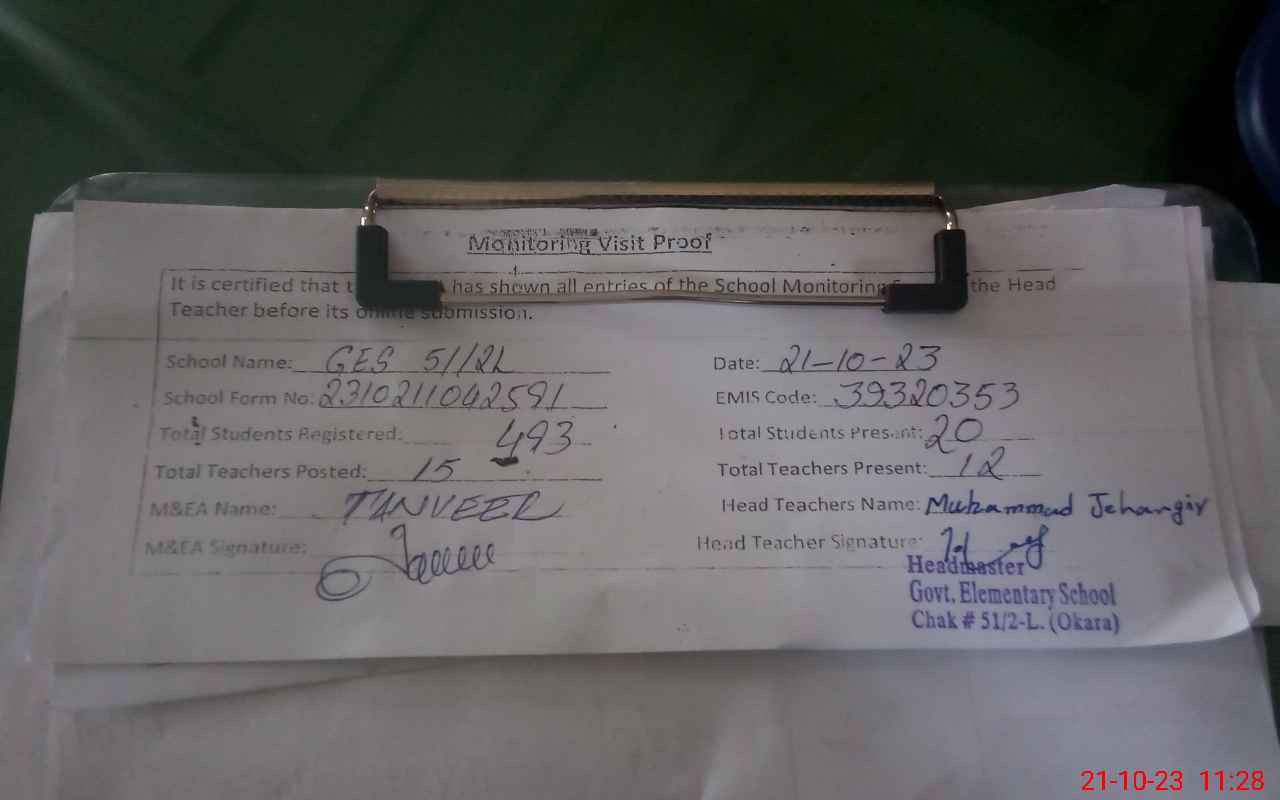 Monitoring Visit Proof
It is certified that t A has shown all entries of the School Monitoring the Head
Teacher before its online submission.
School Name: GES 51/2L Date: 21-10-23
School Form No: 2310211042591 EMIS Code: 39320353
Total Students Registered: 493 Total Students Present: 20
Total Teachers Posted: 15 Total Teachers Present: 12
M&EA Name: TANVEER Head Teachers Name: Muhammad Jehangir
M&EA Signature: Head Teacher Signature:
Headmaster
Govt. Elementary School
Chak # 51/2-L. (Okara)
21-10-23 11:28